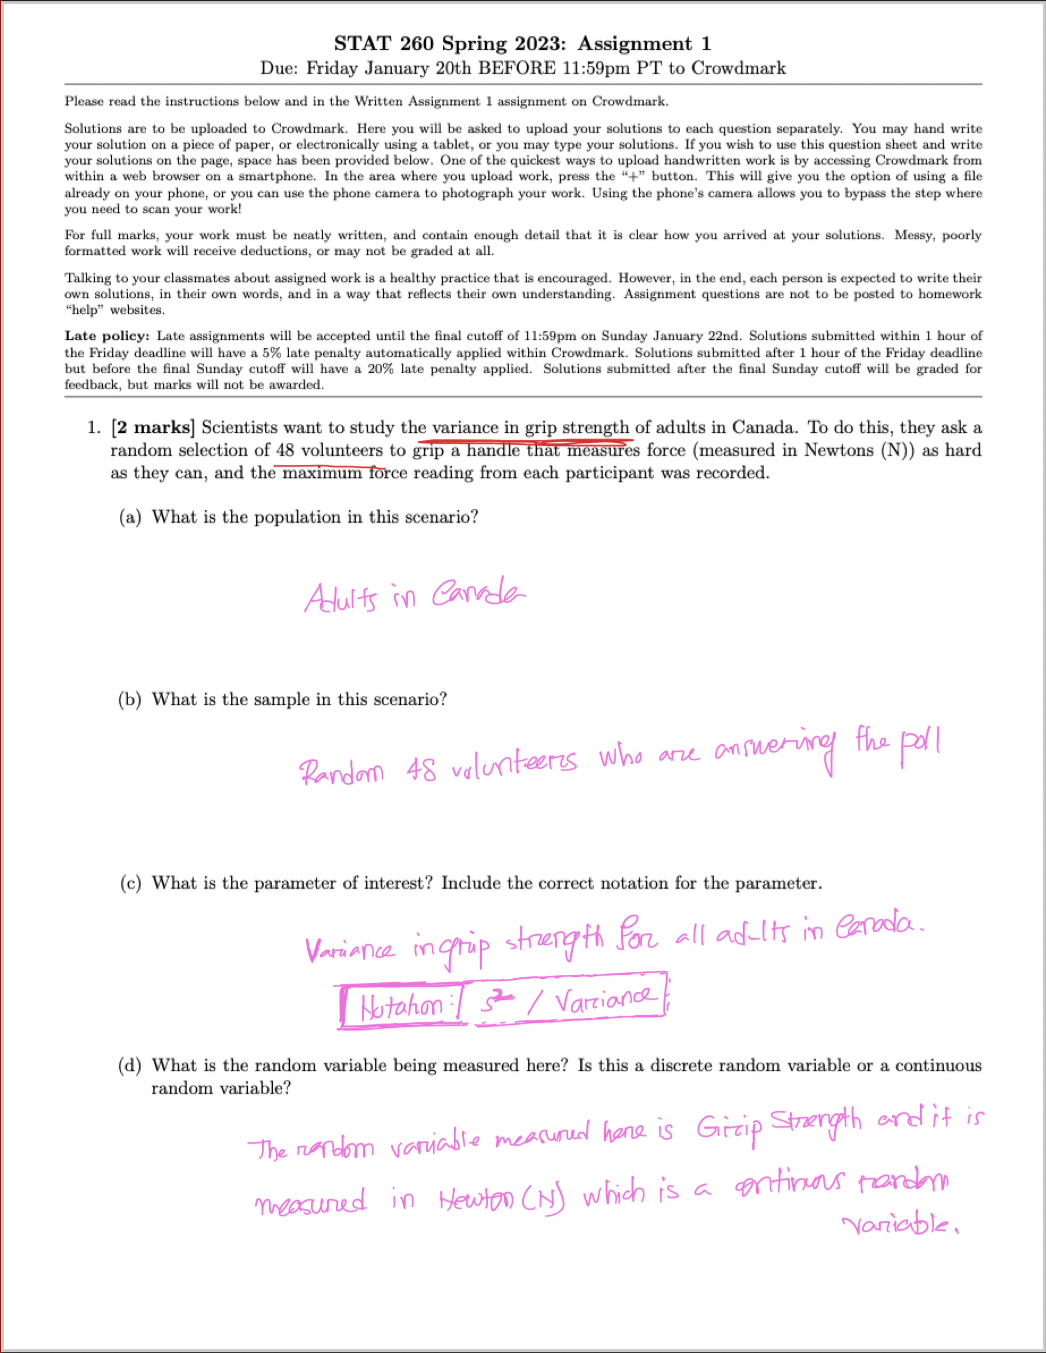 STAT 260 Spring 2023: Assignment 1
Due: Friday January 20th BEFORE 11:59pm PT to Crowdmark
Please read the instructions below and in the Written Assignment 1 assignment on Crowdmark.
Solutions are to be uploaded to Crowdmark. Here you will be asked to upload your solutions to each question separately. You may hand write
your solution on a piece of paper, or electronically using a tablet, or you may type your solutions. If you wish to use this question sheet and write
your solutions on the page, space has been provided below. One of the quickest ways to upload handwritten work is by accessing Crowdmark from
within a web browser on a smartphone. In the area where you upload work, press the “+” button. This will give you the option of using a file
already on your phone, or you can use the phone camera to photograph your work. Using the phone’s camera allows you to bypass the step where
you need to scan your work!
For full marks, your work must be neatly written, and contain enough detail that it is clear how you arrived at your solutions. Messy, poorly
formatted work will receive deductions, or may not be graded at all.
Talking to your classmates about assigned work is a healthy practice that is encouraged. However, in the end, each person is expected to write their
own solutions, in their own words, and in a way that reflects their own understanding. Assignment questions are not to be posted to homework
“help” websites.
Late policy: Late assignments will be accepted until the final cutoff of 11:59pm on Sunday January 22nd. Solutions submitted within 1 hour of
the Friday deadline will have a 5% late penalty automatically applied within Crowdmark. Solutions submitted after 1 hour of the Friday deadline
but before the final Sunday cutoff will have a 20% late penalty applied. Solutions submitted after the final Sunday cutoff will be graded for
feedback, but marks will not be awarded.
1. [2 marks] Scientists want to study the variance in grip strength of adults in Canada. To do this, they ask a
random selection of 48 volunteers to grip a handle that measures force (measured in Newtons (N)) as hard
as they can, and the maximum force reading from each participant was recorded.
(a) What is the population in this scenario?
Adults in Canada
(b) What is the sample in this scenario?
Random 48 volunteers who are answering the poll
(c) What is the parameter of interest? Include the correct notation for the parameter.
Variance in grip strength for all adults in Canada.
Notation: s² / Variance
(d) What is the random variable being measured here? Is this a discrete random variable or a continuous
random variable?
The random variable measured here is Grip Strength and it is
measured in Newton (N) which is a continous random
variable.